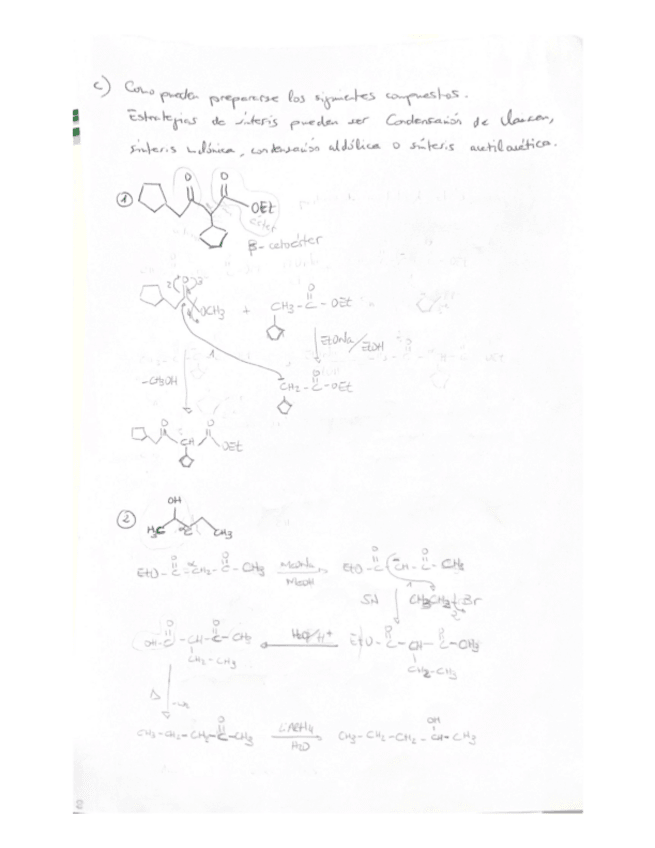 c) Como pueden prepararse los siguientes compuestos.
Estrategias de síntesis pueden ser Condensación de Claisen,
síntesis malónica, condensación aldólica o síntesis acetilacética.
1 O O
OEt
ester
β-cetoéster
2 O 3
OCH3 + CH3-C-OEt
O
EtONa/EtOH
1
-CH3OH
CH2-C-OEt
O
O O
CH OEt
2 OH
H3C CH3
EtO-C-CH2-C-CH3 MeONa MeOH EtO-C-CH-C-CH3
O O O O
SN CH3CH2-Br
OH-C-CH-C-CH3 H2O/H+ EtO-C-CH-C-CH3
CH2-CH3 CH2-CH3
Δ
CH3-CH2-CH2-C-CH3 LiAlH4 H2O CH3-CH2-CH2-CH-CH3
O OH